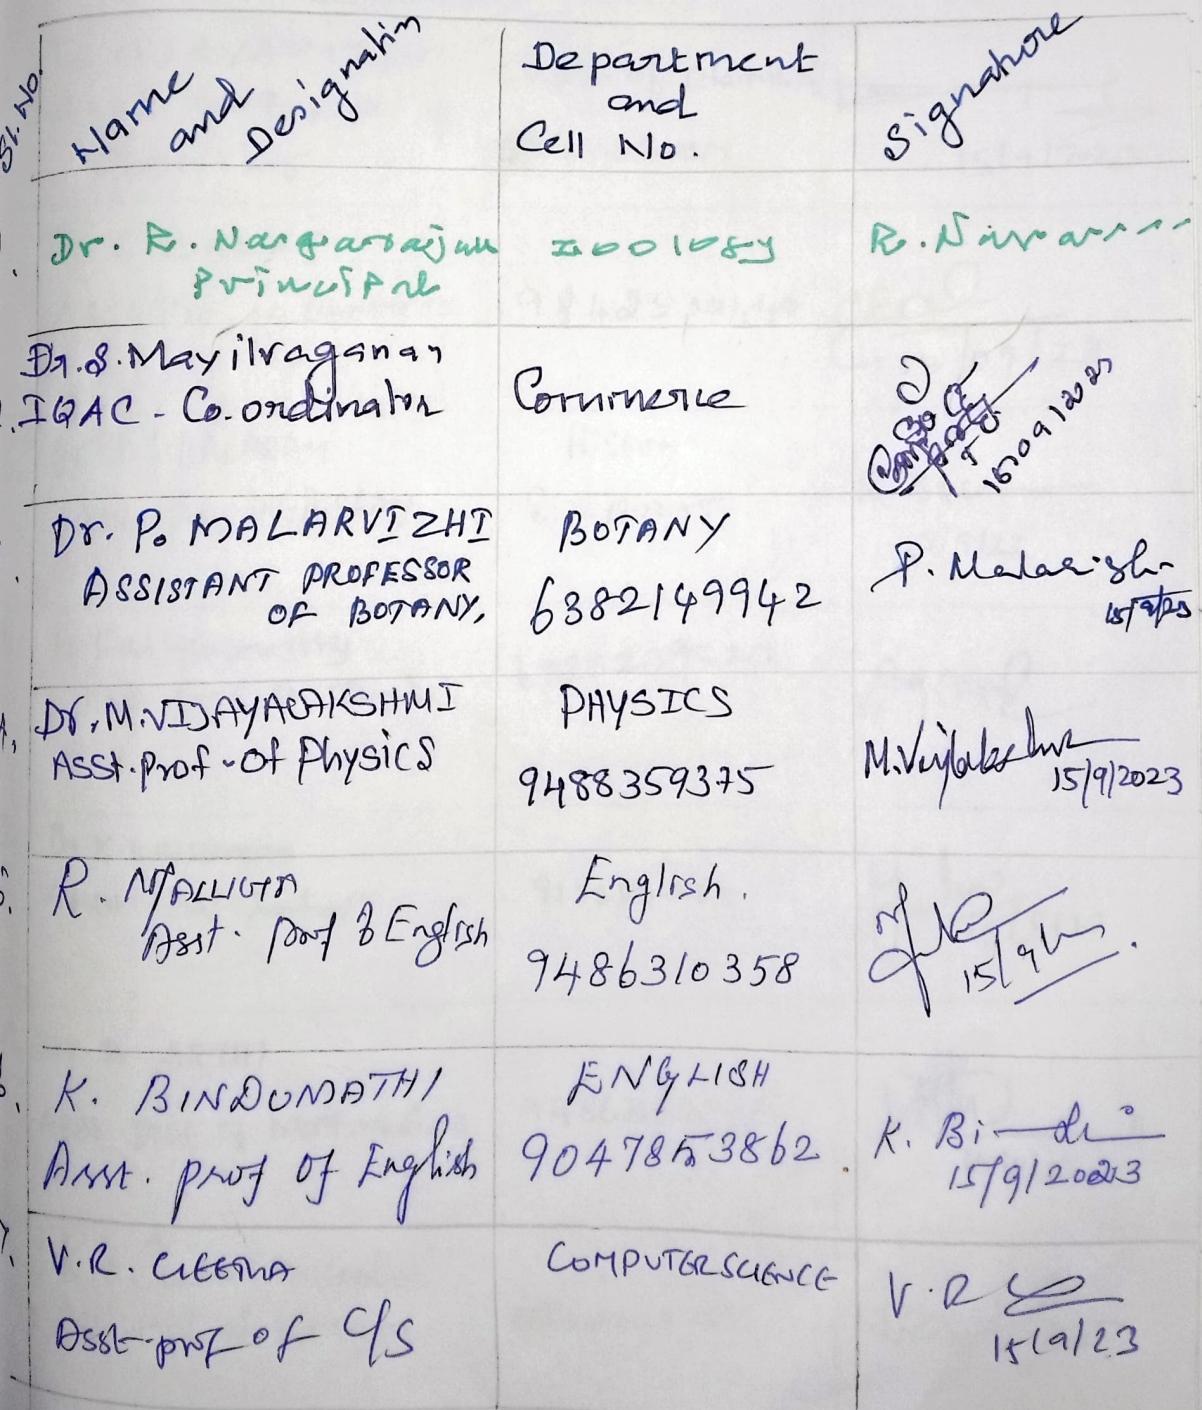 Sl. No.
Name
and
Designation
Department
and
Cell No.
Signature
Dr. R. Nagarajan
Principal
Zoology
Dr. S. Mayilvaganan
IQAC - Co-ordinator
Commerce
15/09/2023
Dr. P. MALARVIZHI
ASSISTANT PROFESSOR
OF BOTANY,
BOTANY
6382149942
P. Malarvizhi
15/9/23
4, Dr. M. VIJAYALAKSHMI
Asst. Prof. Of Physics
PHYSICS
9488359375
M. Vijayalakshmi
15/9/2023
R. MALLIGA
Asst. Prof of English
English.
9486310358
15/9/
K. BINDUMATHI
Asst. prof of English
ENGLISH
9047853862
K. Bi
15/9/2023
7. V.R. GEETHA
Asst. prof of C/S
COMPUTER SCIENCE
V.R
15/9/23